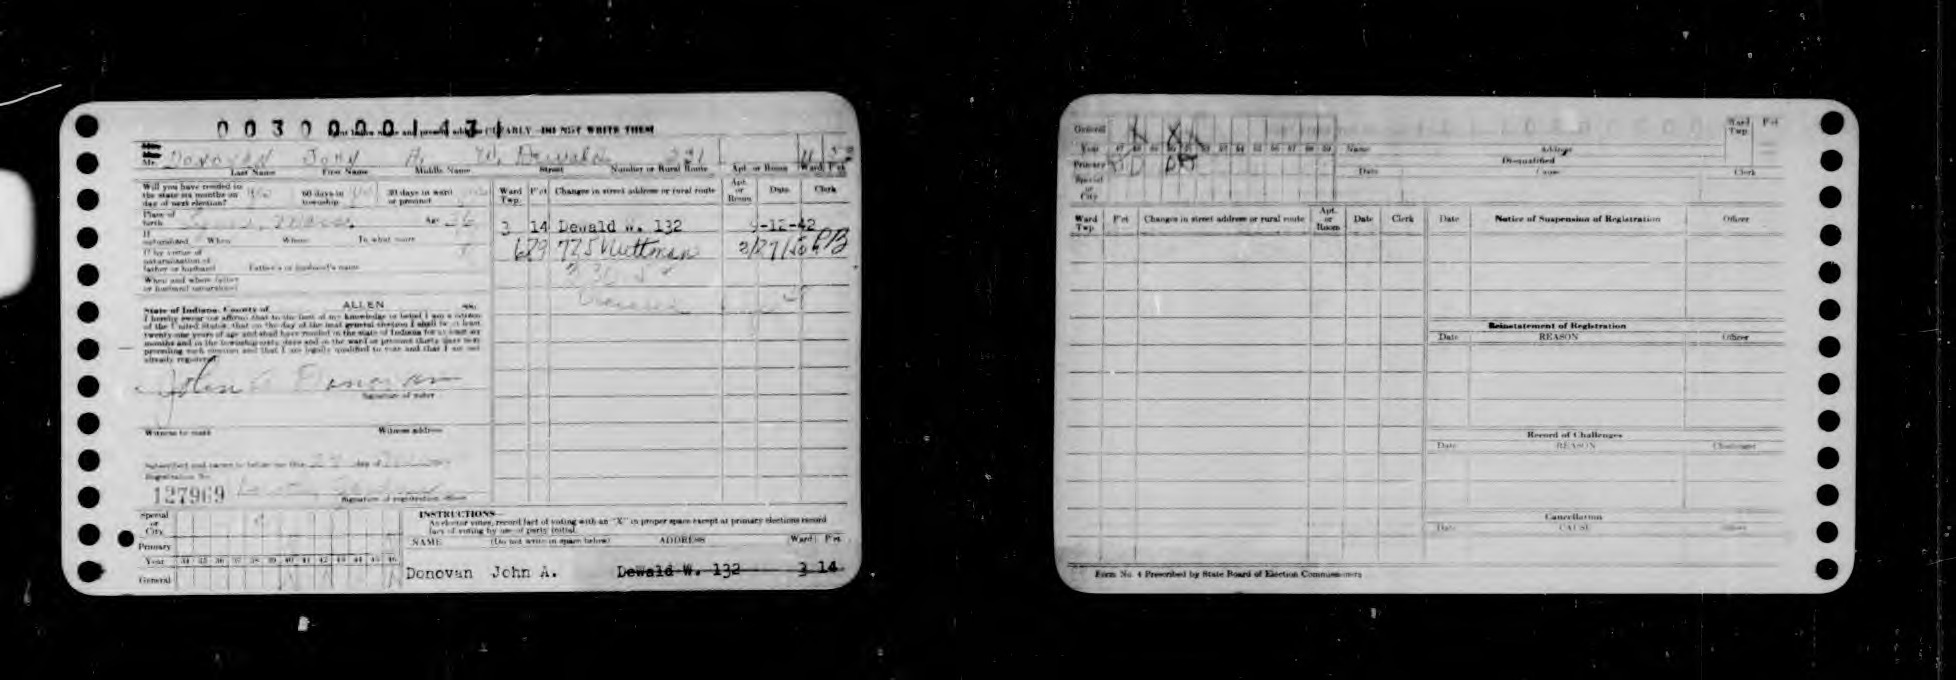 003000014
CLEARLY—DO NOT WRITE THEM
Mr. DONOVAN JOHN A. W. DEWALD 321
Last Name First Name Middle Name Street Number or Rural Route Apt. or Room Ward Pct
Will you have resided in the state six months on day of next election? 60 days in township 30 days in ward or precinct
Place of birth Age 26
If naturalized When Where In what name
If by virtue of naturalization of father or husband Father's or husband's name
When and where father or husband naturalized
State of Indiana, County of ALLEN
I hereby swear or affirm that to the best of my knowledge or belief I am a citizen
of the United States, that on the day of the next general election I shall be at least
twenty one years of age and shall have resided in the state of Indiana for at least six
months and in the township sixty days and in the ward or precinct thirty days next
preceding such election and that I am legally qualified to vote and that I am not
already registered.
John A Donovan
Signature of voter
Witness to mark Witness address
Subscribed and sworn to before me this day of
Registration No.
127969
Signature of registration officer
Ward Twp. Pct Changes in street address or rural route Apt. or Room Date Clerk
3 14 Dewald W. 132 9-12-42
689 725 Nuttman PB
Special or City
Primary
Year 34 35 36 37 38 39 40 41 42 43 44 45 46
General
INSTRUCTIONS—
As elector votes, record fact of voting with an "X" in proper space except at primary elections record
fact of voting by use of party initial.
NAME (Do not write in space below) ADDRESS Ward Pct
Donovan John A. Dewald W. 132 3 14
General X X X
Year 47 48 49 50 51 52 53 54 55 56 57 58 59
Primary
Special or City
Name Address Ward Twp. Pct
Disqualified
Date Cause Clerk
Ward Twp. Pct Changes in street address or rural route Apt. or Room Date Clerk
Date Notice of Suspension of Registration Officer
Reinstatement of Registration
Date REASON Officer
Record of Challenges
Date REASON Challenger
Cancellation
Date CAUSE Officer
Form No. 4 Prescribed by State Board of Election Commissioners